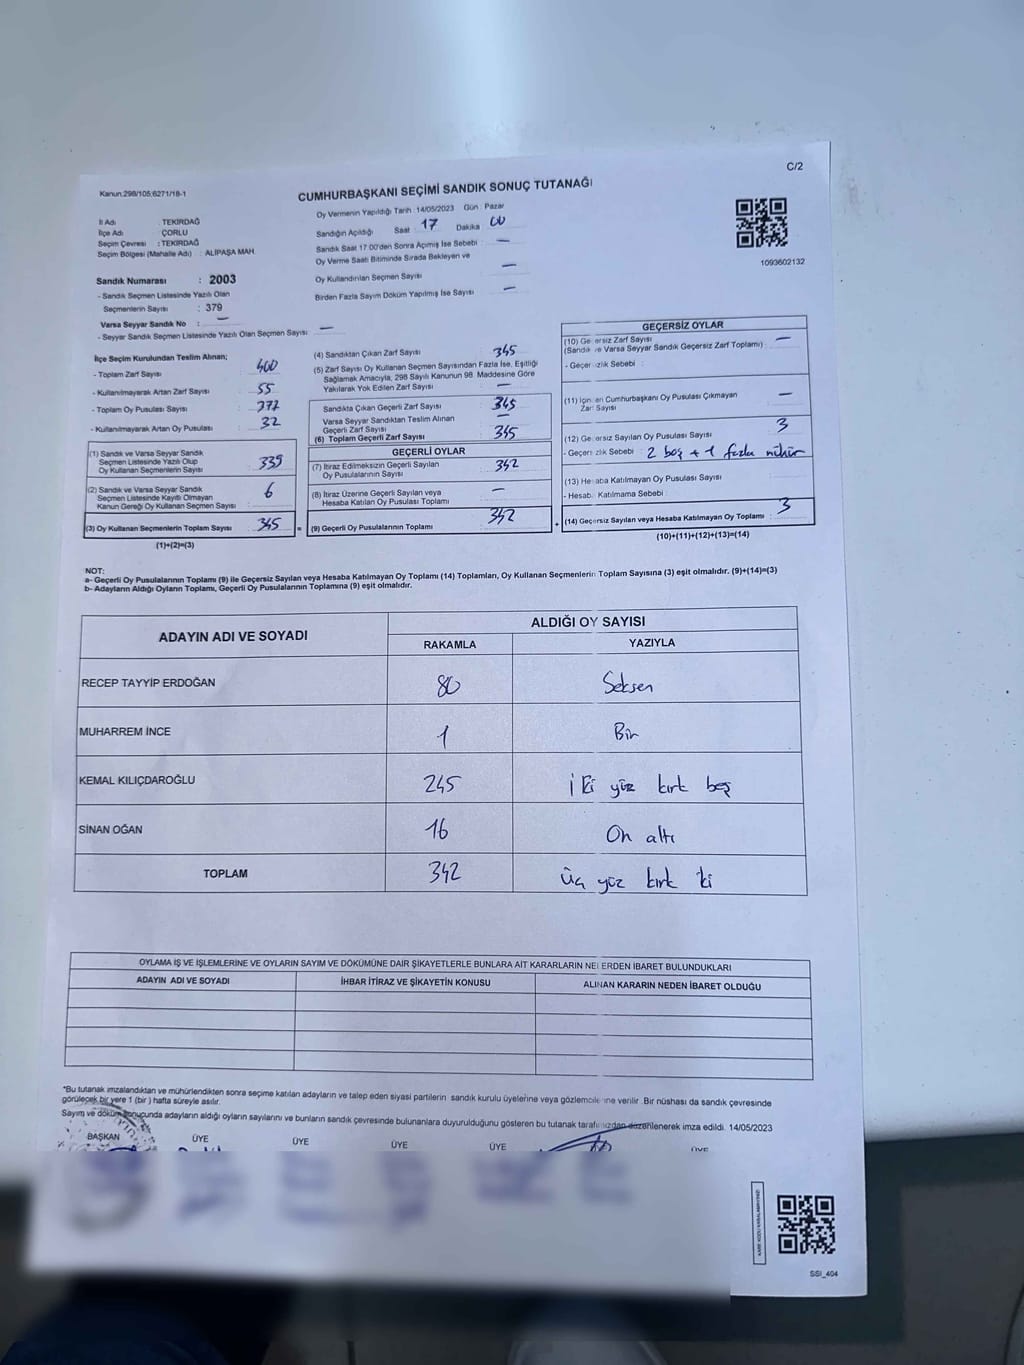 C/2
Kanun.298/105;6271/18-1
CUMHURBAŞKANI SEÇİMİ SANDIK SONUÇ TUTANAĞI
İl Adı : TEKİRDAĞ
İlçe Adı : ÇORLU
Seçim Çevresi : TEKİRDAĞ
Seçim Bölgesi (Mahalle Adı) : ALİPAŞA MAH.
Oy Vermenin Yapıldığı Tarih :14/05/2023 Gün : Pazar
Sandığın Açıldığı Saat 17 Dakika 00
Sandık Saat 17:00'den Sonra Açılmış İse Sebebi : —
Oy Verme Saati Bitiminde Sırada Bekleyen ve
Oy Kullandırılan Seçmen Sayısı —
Birden Fazla Sayım Döküm Yapılmış İse Sayısı —
1093602132
Sandık Numarası : 2003
- Sandık Seçmen Listesinde Yazılı Olan
Seçmenlerin Sayısı : 379
Varsa Seyyar Sandık No : —
- Seyyar Sandık Seçmen Listesinde Yazılı Olan Seçmen Sayısı : —
İlçe Seçim Kurulundan Teslim Alınan;
- Toplam Zarf Sayısı 400
- Kullanılmayarak Artan Zarf Sayısı 55
- Toplam Oy Pusulası Sayısı 377
- Kullanılmayarak Artan Oy Pusulası 32
(1) Sandık ve Varsa Seyyar Sandık
Seçmen Listesinde Yazılı Olup
Oy Kullanan Seçmenlerin Sayısı 339
(2) Sandık ve Varsa Seyyar Sandık
Seçmen Listesinde Kayıtlı Olmayan
Kanun Gereği Oy Kullanan Seçmen Sayısı 6
(3) Oy Kullanan Seçmenlerin Toplam Sayısı 345
(1)+(2)=(3)
(4) Sandıktan Çıkan Zarf Sayısı 345
(5) Zarf Sayısı Oy Kullanan Seçmen Sayısından Fazla İse, Eşitliği
Sağlamak Amacıyla, 298 Sayılı Kanunun 98. Maddesine Göre
Yakılarak Yok Edilen Zarf Sayısı —
Sandıkta Çıkan Geçerli Zarf Sayısı 345
Varsa Seyyar Sandıktan Teslim Alınan
Geçerli Zarf Sayısı —
(6) Toplam Geçerli Zarf Sayısı 345
GEÇERLİ OYLAR
(7) İtiraz Edilmeksizin Geçerli Sayılan
Oy Pusulalarının Sayısı 342
(8) İtiraz Üzerine Geçerli Sayılan veya
Hesaba Katılan Oy Pusulası Toplamı —
= (9) Geçerli Oy Pusulalarının Toplamı 342
GEÇERSİZ OYLAR
(10) Geçersiz Zarf Sayısı
(Sandık ve Varsa Seyyar Sandık Geçersiz Zarf Toplamı) : —
- Geçersizlik Sebebi :
(11) İçinden Cumhurbaşkanı Oy Pusulası Çıkmayan
Zarf Sayısı —
(12) Geçersiz Sayılan Oy Pusulası Sayısı 3
- Geçersizlik Sebebi : 2 boş + 1 fazla mühür
(13) Hesaba Katılmayan Oy Pusulası Sayısı
- Hesaba Katılmama Sebebi :
+ (14) Geçersiz Sayılan veya Hesaba Katılmayan Oy Toplamı 3
(10)+(11)+(12)+(13)=(14)
NOT:
a- Geçerli Oy Pusulalarının Toplamı (9) ile Geçersiz Sayılan veya Hesaba Katılmayan Oy Toplamı (14) Toplamları, Oy Kullanan Seçmenlerin Toplam Sayısına (3) eşit olmalıdır. (9)+(14)=(3)
b- Adayların Aldığı Oyların Toplamı, Geçerli Oy Pusulalarının Toplamına (9) eşit olmalıdır.
ADAYIN ADI VE SOYADI ALDIĞI OY SAYISI
RAKAMLA YAZIYLA
RECEP TAYYİP ERDOĞAN 80 Seksen
MUHARREM İNCE 1 Bir
KEMAL KILIÇDAROĞLU 245 iki yüz kırk beş
SİNAN OĞAN 16 On altı
TOPLAM 342 üç yüz kırk iki
OYLAMA İŞ VE İŞLEMLERİNE VE OYLARIN SAYIM VE DÖKÜMÜNE DAİR ŞİKAYETLERLE BUNLARA AİT KARARLARIN NELERDEN İBARET BULUNDUKLARI
ADAYIN ADI VE SOYADI İHBAR İTİRAZ VE ŞİKAYETİN KONUSU ALINAN KARARIN NEDEN İBARET OLDUĞU
*Bu tutanak imzalandıktan ve mühürlendikten sonra seçime katılan adayların ve talep eden siyasi partilerin sandık kurulu üyelerine veya gözlemcilerine verilir. Bir nüshası da sandık çevresinde
görülecek bir yere 1 (bir ) hafta süreyle asılır.
Sayım ve döküm sonucunda adayların aldığı oyların sayılarını ve bunların sandık çevresinde bulunanlara duyurulduğunu gösteren bu tutanak tarafımızdan düzenlenerek imza edildi. 14/05/2023
BAŞKAN ÜYE ÜYE ÜYE ÜYE ÜYE
SSI_404